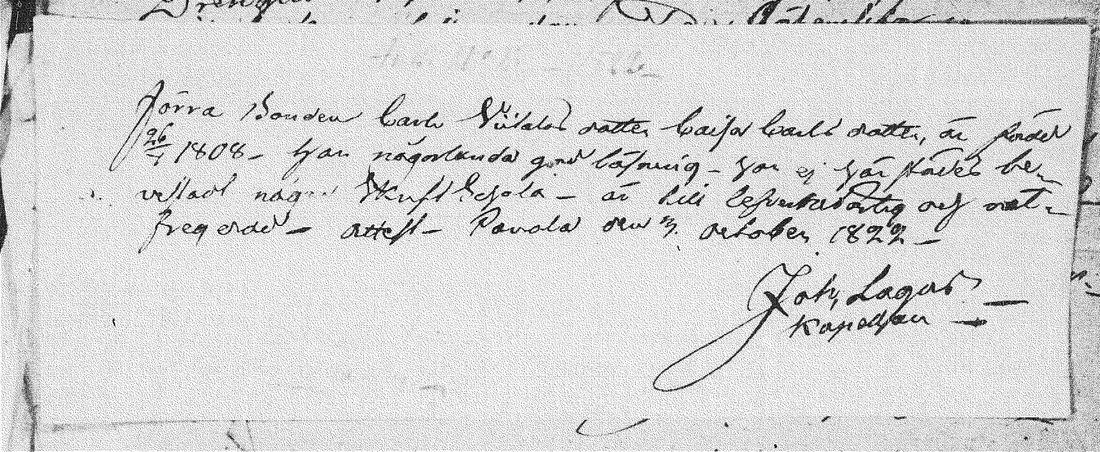 Förra Bonden Carl Viitalas dotter Caisa Carls dotter, är född
26/1 1808 – har någorlunda god läsning – har ej här städes be-
vistadt någon Skrift Schola – är till lefverne ärlig och
frejdad – attest – Pavola den october 1822 –
Joh, Lagus –
Kapellan –